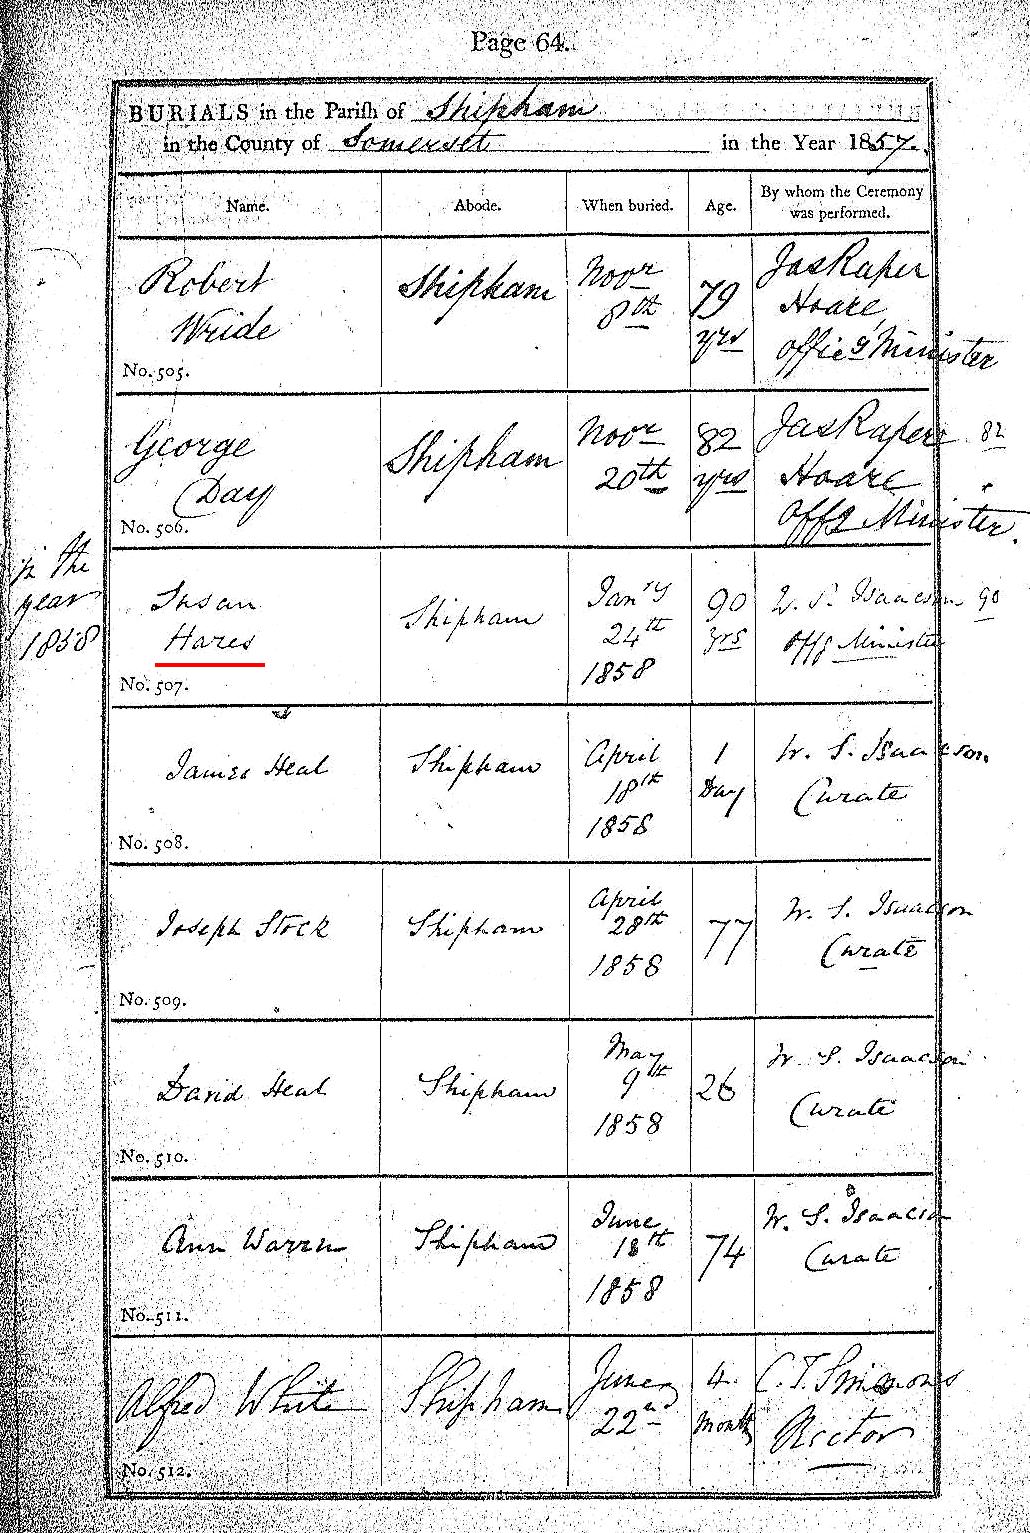 Page 64.
BURIALS in the Pariſh of Shipham
in the County of Somerset in the Year 1857.
Name. Abode. When buried. Age. By whom the Ceremony was performed.
Robert Shipham Novr 79 Jas Raper
Wride 8th yrs Hoare
No. 505. Officg Minister
George Shipham Novr 82 Jas Raper 82
Day 20th yrs Hoare
No. 506. Offg Minister.
in the
year
1858
Susan Shipham Jany 90 W. S. Isaacson 90
Hares 24th yrs Offg Minister
No. 507. 1858
James Heal Shipham April 1 W. S. Isaacson.
18th Day Curate
No. 508. 1858
Joseph Stock Shipham April 77 W. S. Isaacson
28th Curate
No. 509. 1858
David Heal Shipham May 26 W. S. Isaacson
9th Curate
No. 510. 1858
Ann Warren Shipham June 74 W. S. Isaacson
18th Curate
No. 511. 1858
Alfred White Shipham June 4 C. T. Simmons
22nd Months Rector
No. 512.